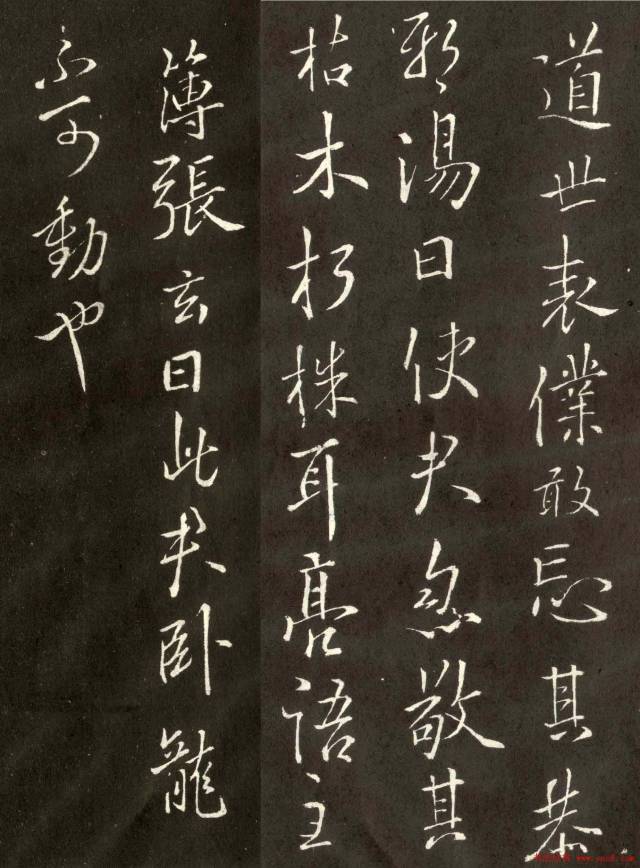 道世表僕敢忘其恭
邪湯曰使君忽敬其
枯木朽株耳亮語主
簿張玄曰此君卧龍
不可動也